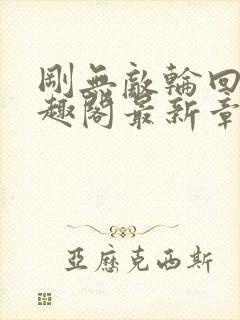 剛無敵輪回
趣閣最新章
亞歷克西斯